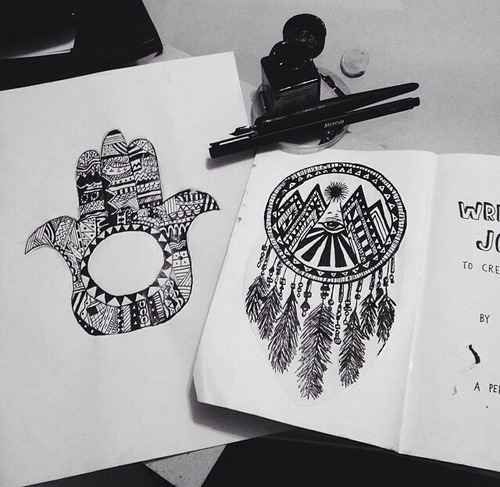 WRE
JO
TO CRE
BY
A PE